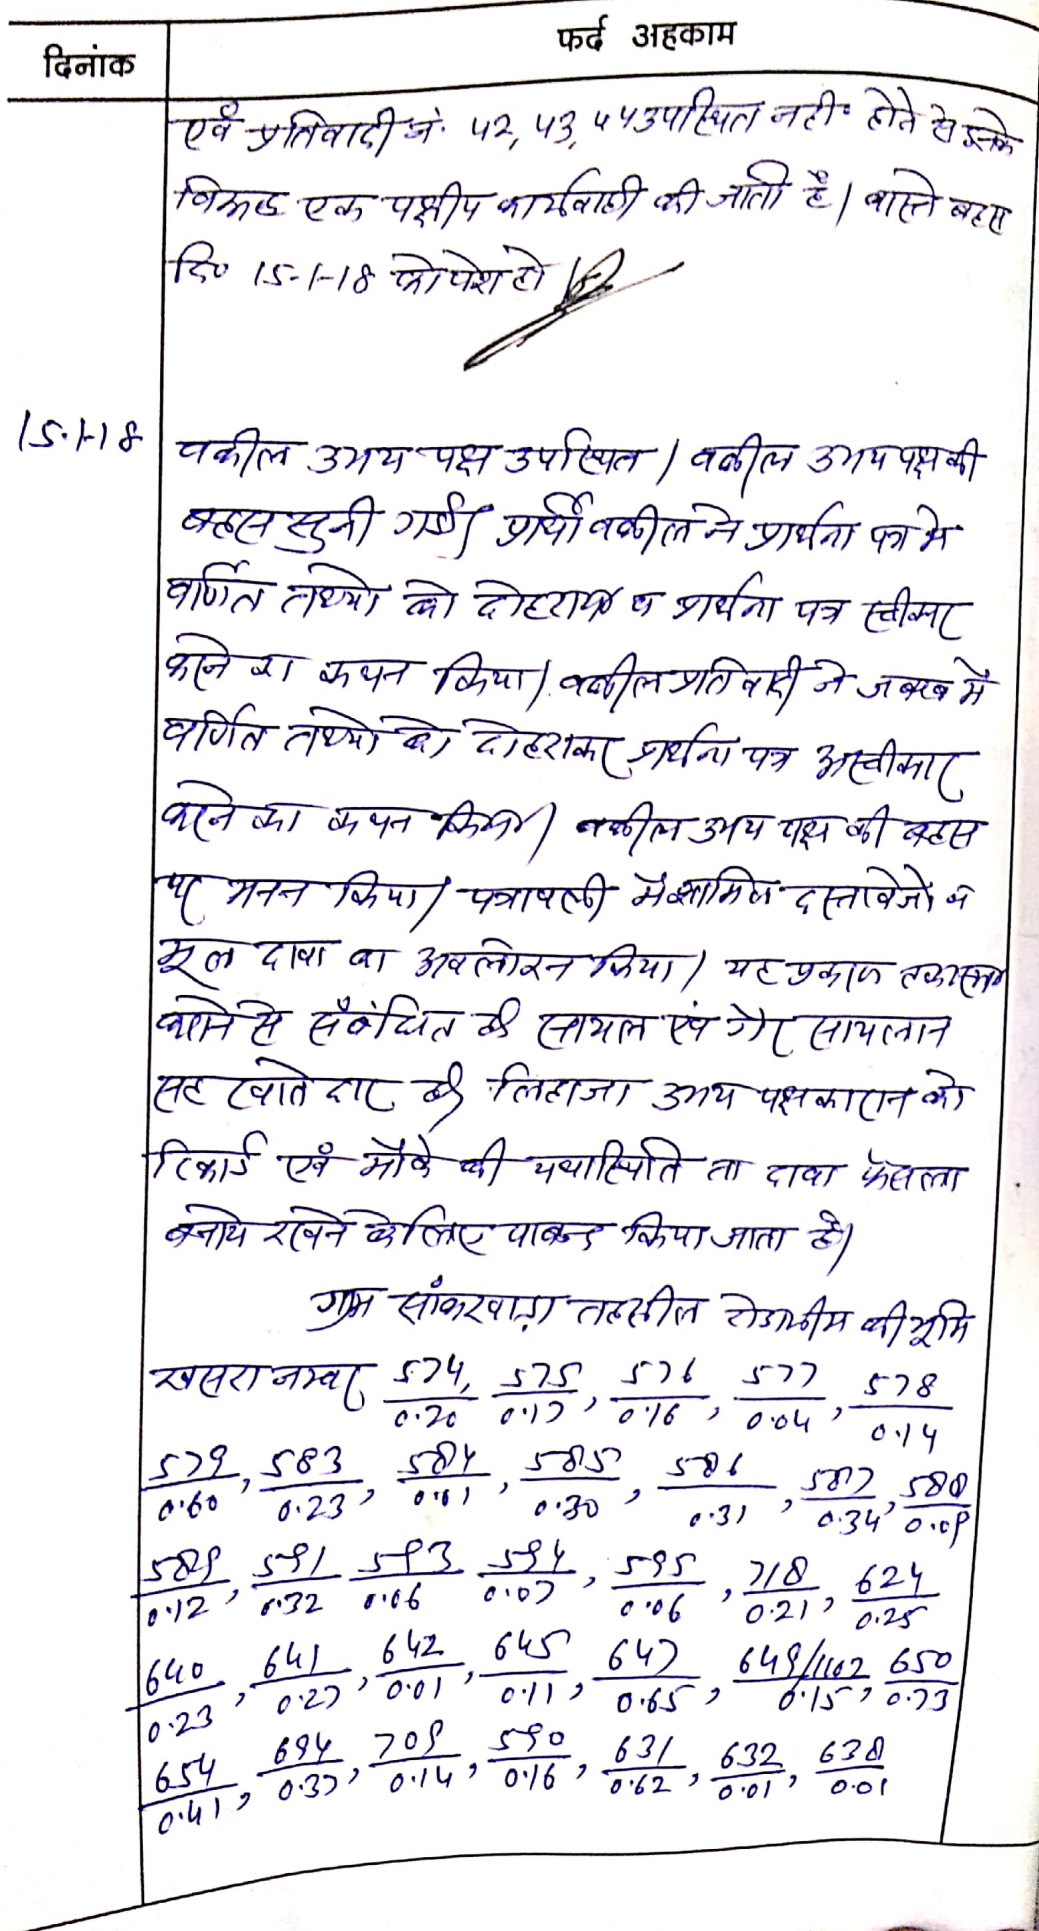 दिनांक
फर्द अहकाम
एवं प्रतिवादी नं. 42, 43, 44 उपस्थित नहीं होने से इनके
विरूद्ध एक पक्षीय कार्यवाही की जाती है। वास्ते बहस
दि० 15-1-18 को पेश हो।
15-1-18
वकील उभय पक्ष उपस्थित। वकील उभय पक्ष की
बहस सुनी गई। प्रार्थी वकील ने प्रार्थना पत्र मे
वर्णित तथ्यो को दोहराया व प्रार्थना पत्र स्वीकार
करने का कथन किया। वकील प्रतिवादी ने जबाब में
वर्णित तथ्यो को दोहराकर प्रार्थना पत्र अस्वीकार
करने का कथन किया। वकील उभय पक्ष की बहस
पर मनन किया। पत्रावली में शामिल दस्तावेजो व
मूल दावा का अवलोकन किया। यह प्रकरण तकास्मा
कराने से संबंधित है सायल एवं गैर सायलान
सह खातेदार है लिहाजा उभय पक्षकारान को
रिकार्ड एवं मौके की यथास्थिति ता दावा फैसला
बनाये रखने के लिए पाबन्द किया जाता है।
ग्राम सांकरवाडा तहसील टोडाभीम की भूमि
खसरा नम्बर 574/0.20, 575/0.17, 576/0.16, 577/0.04, 578/0.14
579/0.60, 583/0.23, 584/0.01, 585/0.30, 586/0.31, 587/0.34, 588/0.09
589/0.12, 591/0.32 593/0.06 594/0.07, 595/0.06, 718/0.21, 624/0.25
640/0.23, 641/0.27, 642/0.01, 645/0.11, 647/0.65, 649/1102/0.15, 650/0.73
654/0.41, 694/0.37, 709/0.14, 590/0.16, 631/0.62, 632/0.01, 638/0.01